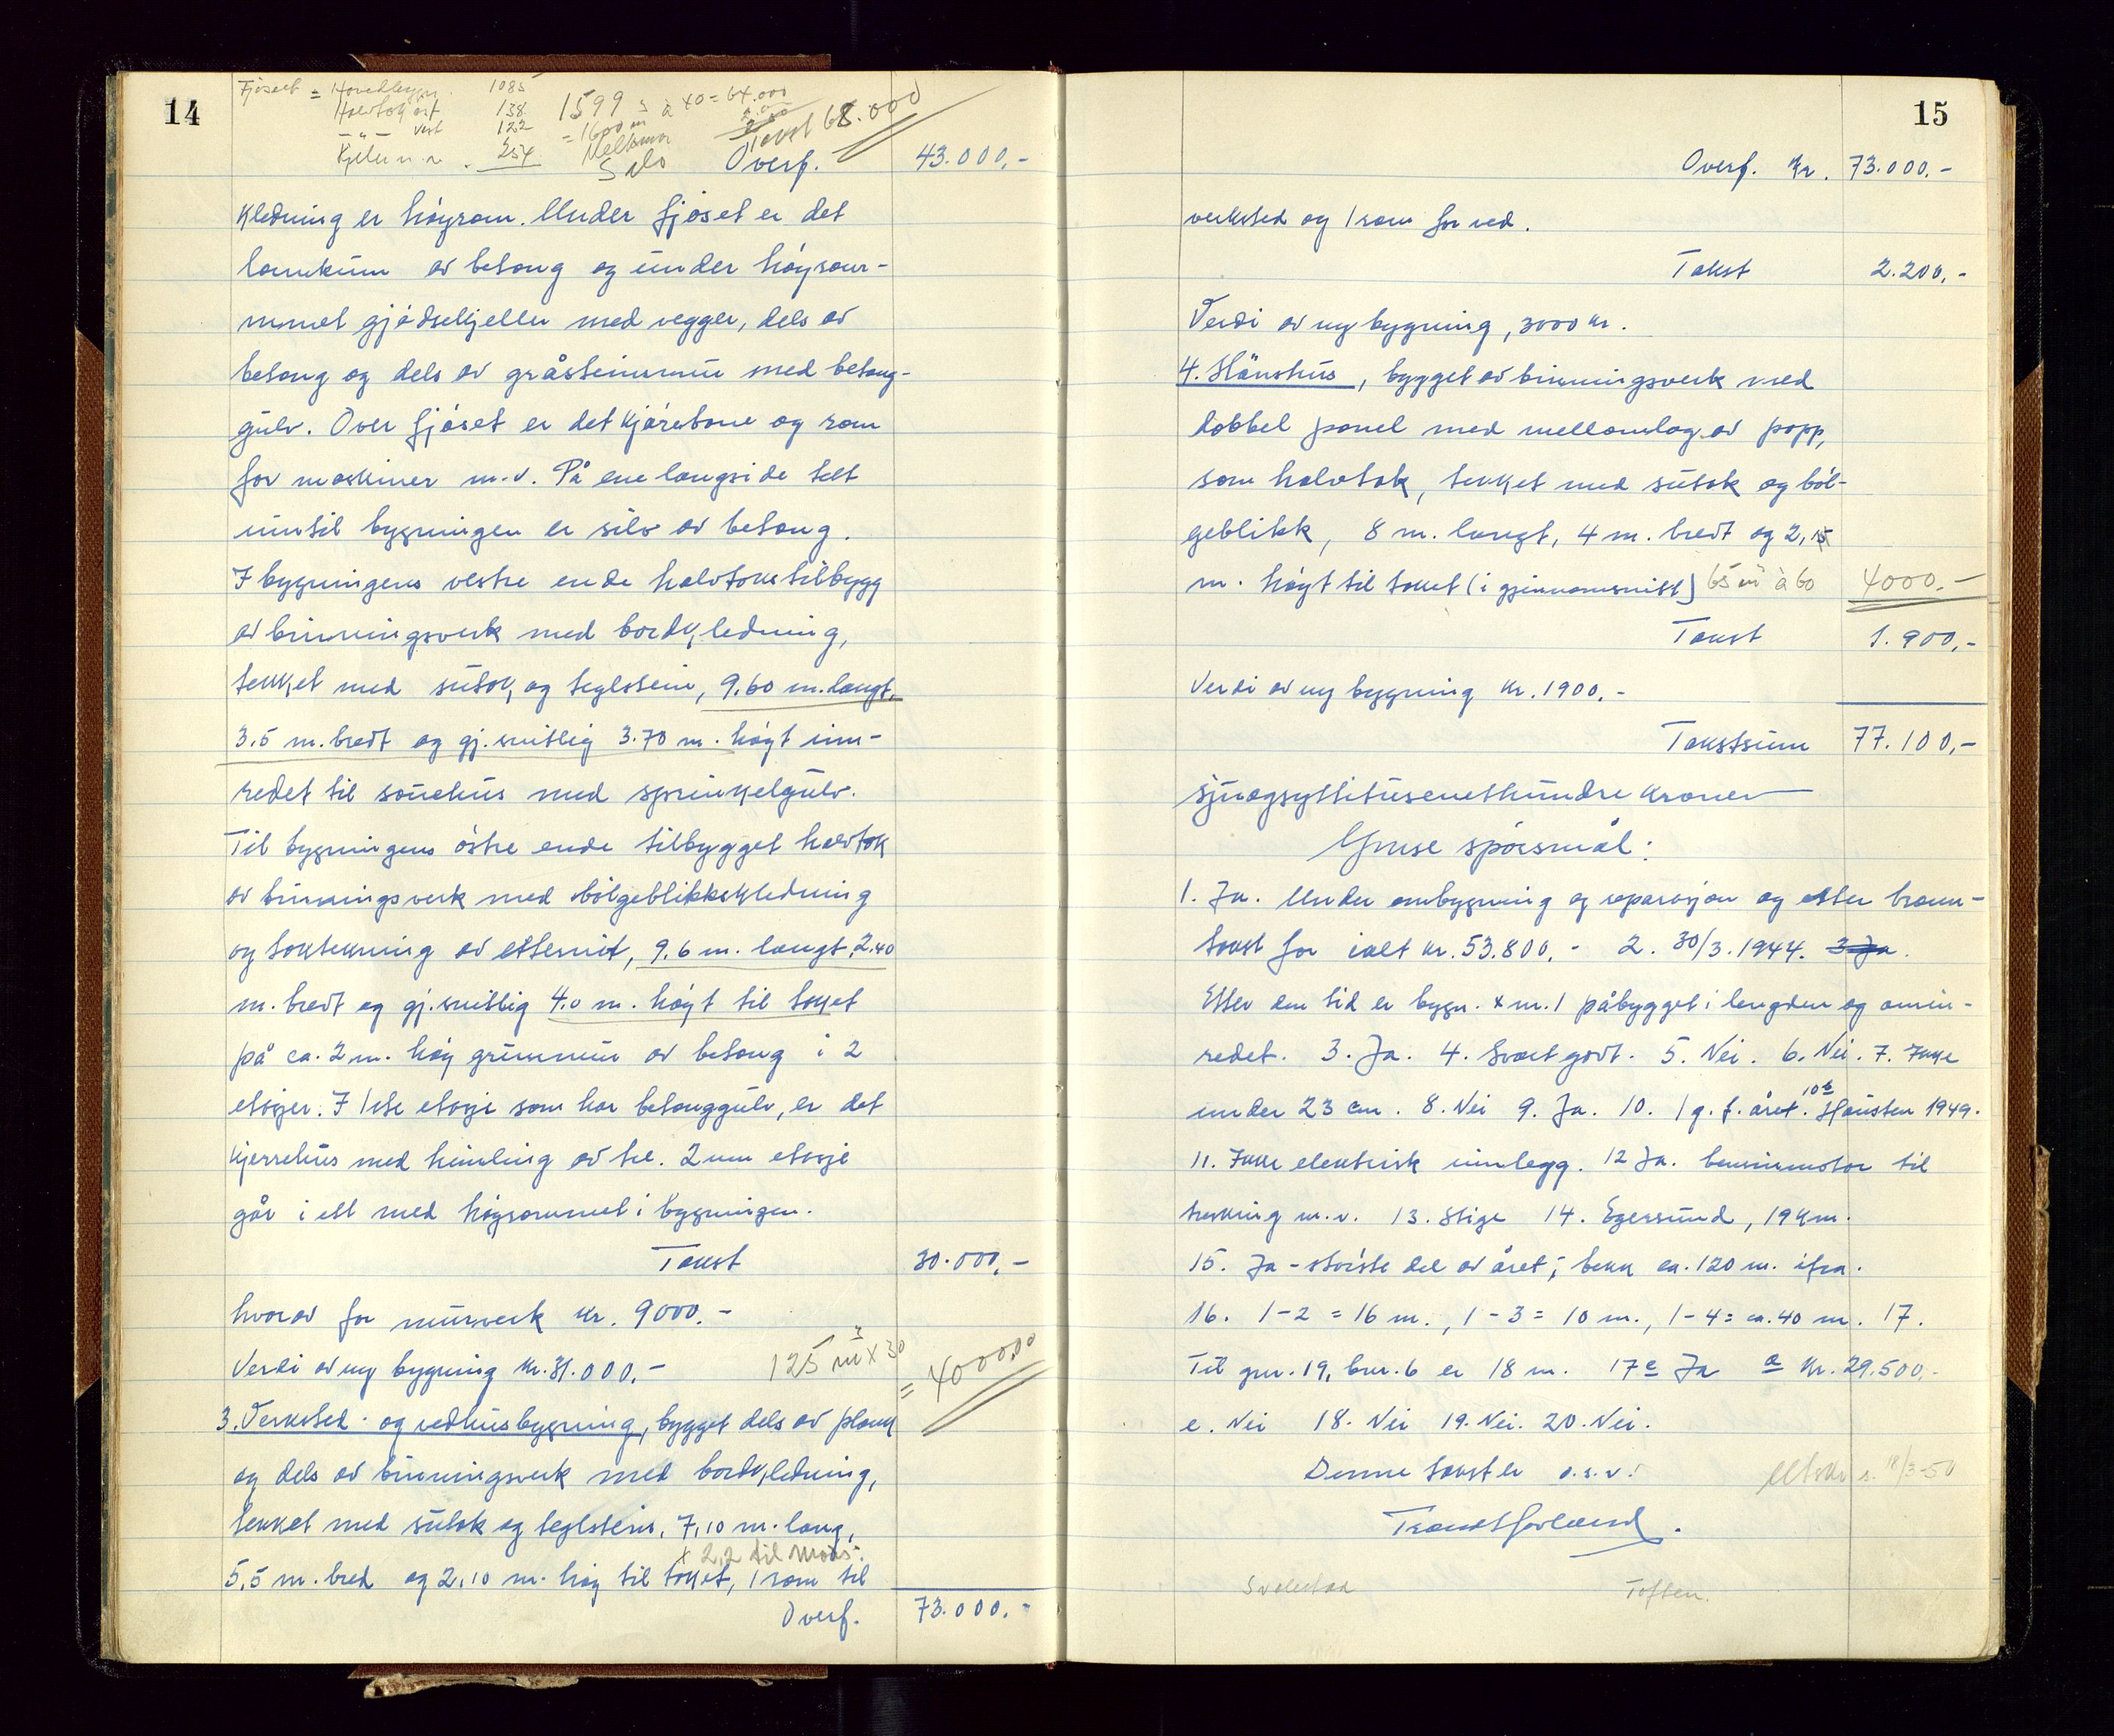 14
Fjöset = Hovedbygn. 1085
Halvtak öst 138
— " — vest 122
Kjeller u. r. 254
1599 s à 40 = 64.000
= 1600 m
Silo
Takst 68.000
Overf. 43.000,-
kledning er höyrom. Under fjöset er det
lankum av betong og under höyrom-
met gjödselkjeller med vegger, dels av
betong og dels av gråsteinsmur med betong-
gulv. Over fjöset er det kjörebane og rom
for maskiner m.v. På ene langside tett
inntil bygningen er silo av betong.
I bygningens vestre ende halvtakstilbygg
av binningsverk med bordkledning,
tekket med sutak og teglstein, 9.60 m. langt,
3.5 m. bredt og gj.snitlig 3.70 m. höyt inn-
redet til sauehus med sprinkelgulv.
Til bygningens östre ende tilbygget halvtak
av binningsverk med bölgeblikkskledning
og taktekning av etternit, 9.6 m. langt, 2.40
m. bredt og gj.snitlig 4.0 m. höyt til taket
på ca. 2 m. höy grunnmur av betong i 2
etasjer. I 1ste etasje som har betonggulv, er det
kjerrehus med himling av tre. 2nen etasje
går i ett med höyrommet i bygningen.
Takst 30.000,-
hvorav for murverk kr. 9000.-
Verdi av ny bygning kr. 31.000,- 125 m³ x 30 = 4000.00
3. Verksted- og vedhusbygning, bygget dels av plank
og dels av binningsverk med bordkledning,
tekket med sutak og teglstein, 7,10 m. lang,
x 2,2 til möns.
5,5 m. bred og 2,10 m. höy til taket, 1 rom til
Overf. 73.000.-
15
Overf. kr. 73.000.-
verksted og 1 rom for ved.
Takst 2.200,-
Verdi av ny bygning, 3000 kr.
4. Hönsehus, bygget av binningsverk med
dobbel panel med mellomlag av papp,
som halvtak, tekket med sutak og böl-
geblikk, 8 m. langt, 4 m. bredt og 2,15
m. höyt til taket (i gjennomsnitt) 65 m³ à 60 4000.-
Takst 1.900,-
Verdi av ny bygning kr. 1900.-
Takstsum 77.100,-
Sjuogsyttitusenethundre kroner
Ymse spörsmål:
1. Ja. Under ombygning og reparasjon og etter brann-
takst for ialt kr. 53.800,- 2. 30/3.1944. 3 Ja.
Etter den tid er bygn. nr. 1 påbygget i lengden og ominn-
redet. 3. Ja. 4. Svært godt. 5. Nei. 6. Nei. 7. Ikke
under 23 cm. 8. Nei 9. Ja. 10. 1 g. f. året. 10b Hausten 1949.
11. Ikke elektrisk innlegg. 12 Ja. bensinmotor til
tresking m.v. 13. Stige 14. Egersund, 19 km.
15. Ja - störste del av året; bekk ca. 120 m. ifra.
16. 1-2 = 16 m., 1-3 = 10 m., 1-4 = ca. 40 m. 17.
Til gnr. 19, bnr. 6 er 18 m. 17 c Ja a Kr. 29.500,-
e. Nei 18. Nei 19. Nei. 20. Nei.
Denne takst er o.s.v.
Utskr. s. 18/3-50
Svalestad Toften.